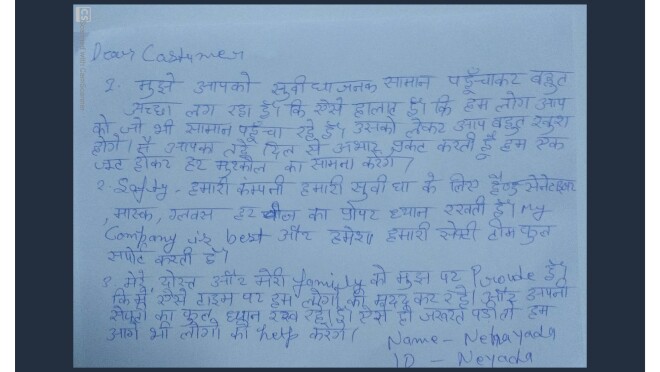 Dear Castumer
1. मुझे आपको सुवीधाजनक सामान पहूँचाकर बहुत
अच्छा लग रहा है। कि ऐसे हालात है। कि हम लोग आप
को जो भी सामान पहूँचा रहे है। उसको लेकर आप बहुत खुश
होगे। मै आपका तहे दिल से अभार प्रकट करती हूँ हम एक
जुट होकर हर मुश्कील का सामना करेगे।
2. Safty - हमारी कंम्पनी हमारी सुवीधा के लिए हैण्ड सेनेटाइजर
, मास्क, ग्लव्स हर चीज का प्रोपर ध्यान रखती है। My
Company is best और हमेशा हमारी सेफ्टी टीम फुल
सपोट करती है।
3. मेरे, दोस्त और मेरी family को मुझ पर Proude है।
कि मै ऐसे टाइम पर हम लोगो की मदद कर रहे। और अपनी
सेफ्टी का फुल, ध्यान रख रहे। है। ऐसे ही जरूरत पडी तो हम
आगे भी लोगो की help करेगे।
Name - Nehayada
ID - Neyada